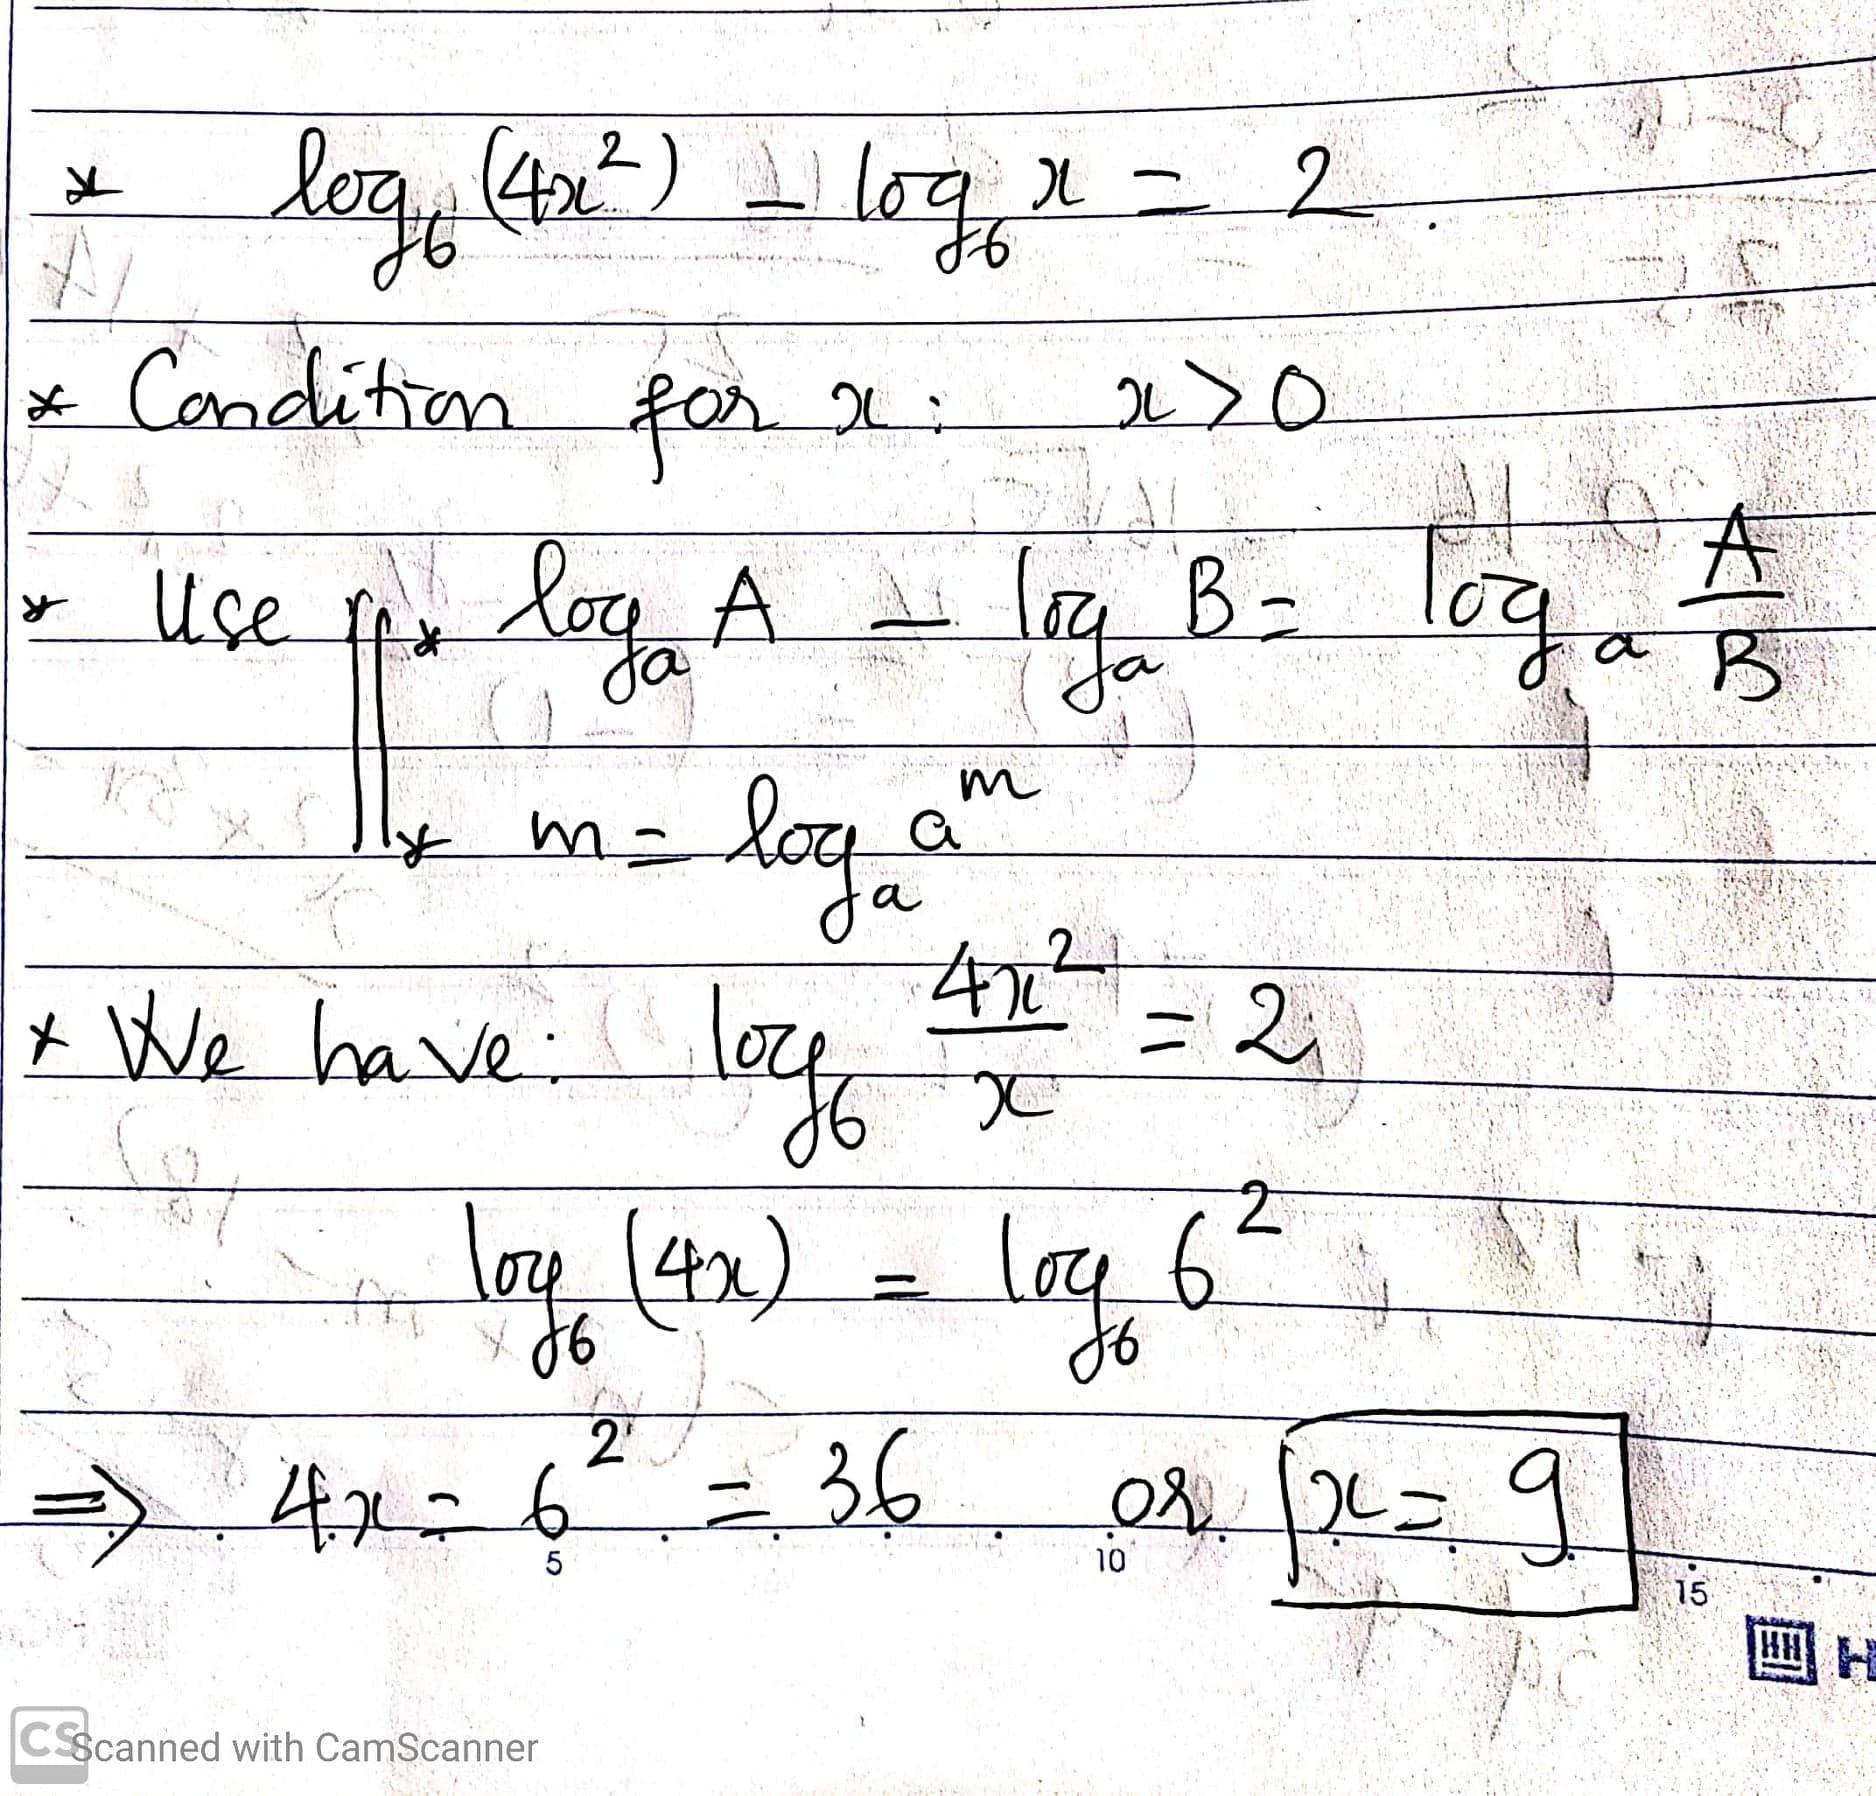 * log₆ (4x²) – log₆ x = 2.
* Condition for x: x > 0
* Use * logₐ A – logₐ B = logₐ A/B
* m = logₐ aᵐ
* We have: log₆ 4x²/x = 2
log₆ (4x) = log₆ 6²
⇒ 4x = 6² = 36 or x = 9
5 10 15
H
CS Scanned with CamScanner